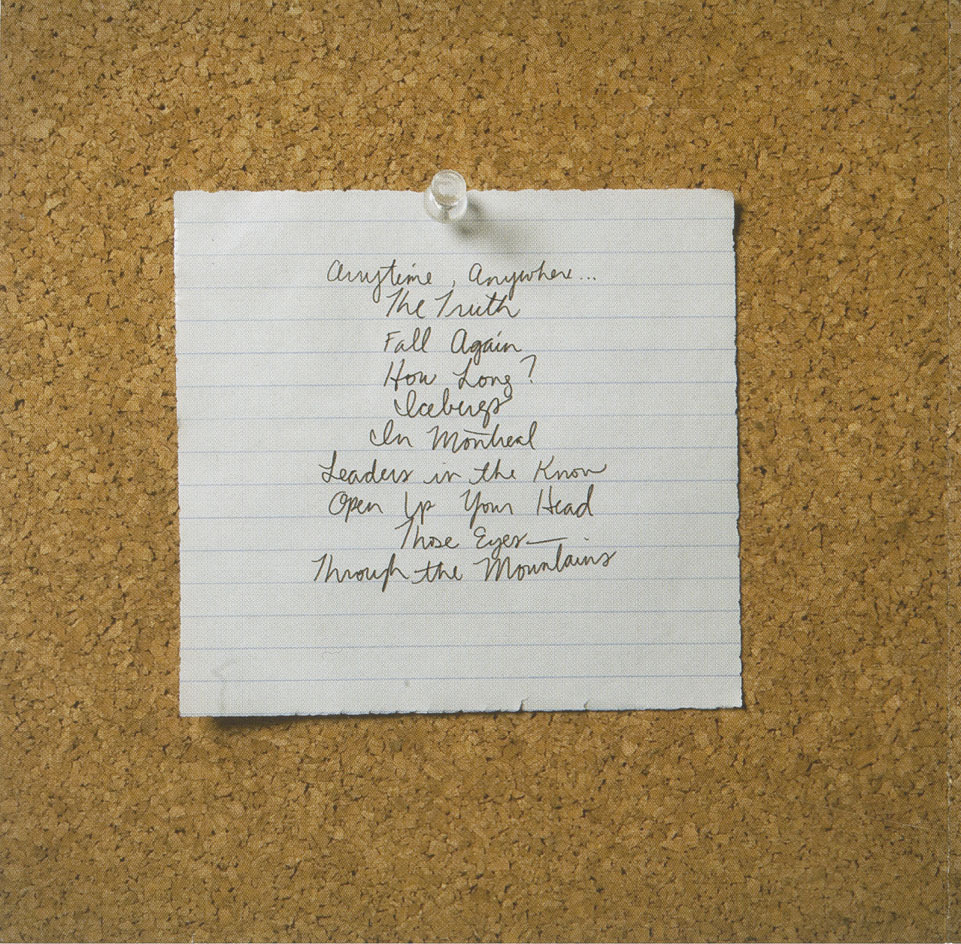 Anytime, Anywhere...
The Truth
Fall Again
How Long?
Icebergs
In Montreal
Leaders in the Know
Open Up Your Head
Those Eyes—
Through the Mountains